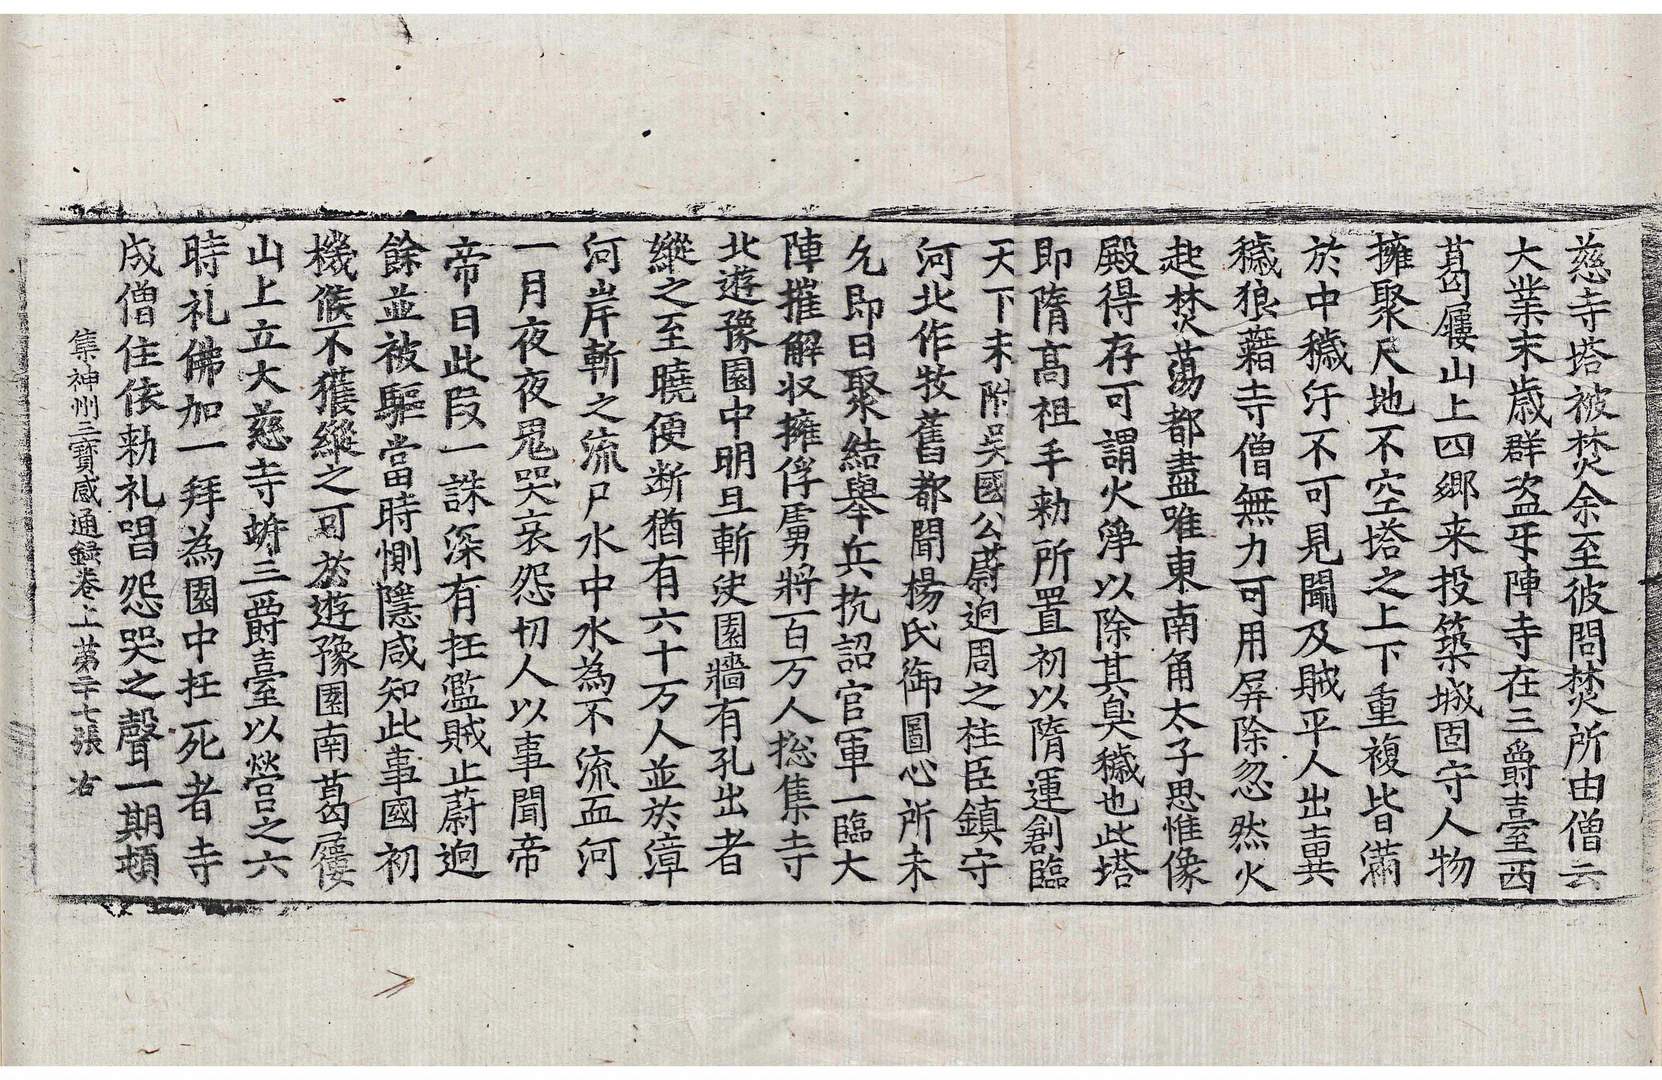 慈寺塔被焚余至彼問焚所由僧云
大業末歳群盗㸦陣寺在三爵臺西
葛屨山上四郷来投築城固守人物
擁聚尺地不空塔之上下重複皆滿
於中穢汙不可見聞及賊平人出糞
穢狼藉寺僧無力可用屏除忽然火
起焚蕩都盡唯東南角太子思惟像
殿得存可謂火淨以除其臭穢也此塔
即隋髙祖手勅所置初以隋運創臨
天下未附吴國公蔚逈周之柱臣鎮守
河北作牧舊都聞楊氏御圖心所未
允即日聚結舉兵抗詔官軍一臨大
陣摧解収擁俘虜將百万人揔集寺
北遊豫園中明旦斬決園牆有孔出者
縱之至曉便断猶有六十万人並於漳
河岸斬之流尸水中水為不流血河
一月夜夜鬼哭哀怨切人以事聞帝
帝曰此段一誅深有抂濫賊止蔚逈
餘並被驅當時惻隱咸知此事國初
機候不獲縱之可於遊豫園南葛屨
山上立大慈寺坼三爵臺以營之六
時礼佛加一拜為園中抂死者寺
成僧住依勅礼唱怨哭之聲一期頓
集神州三寶感通録卷上 苐二十七張 右